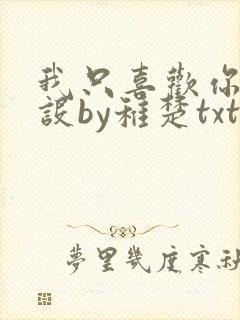 我只喜歡你
設by稚楚txt
夢里幾度寒秋